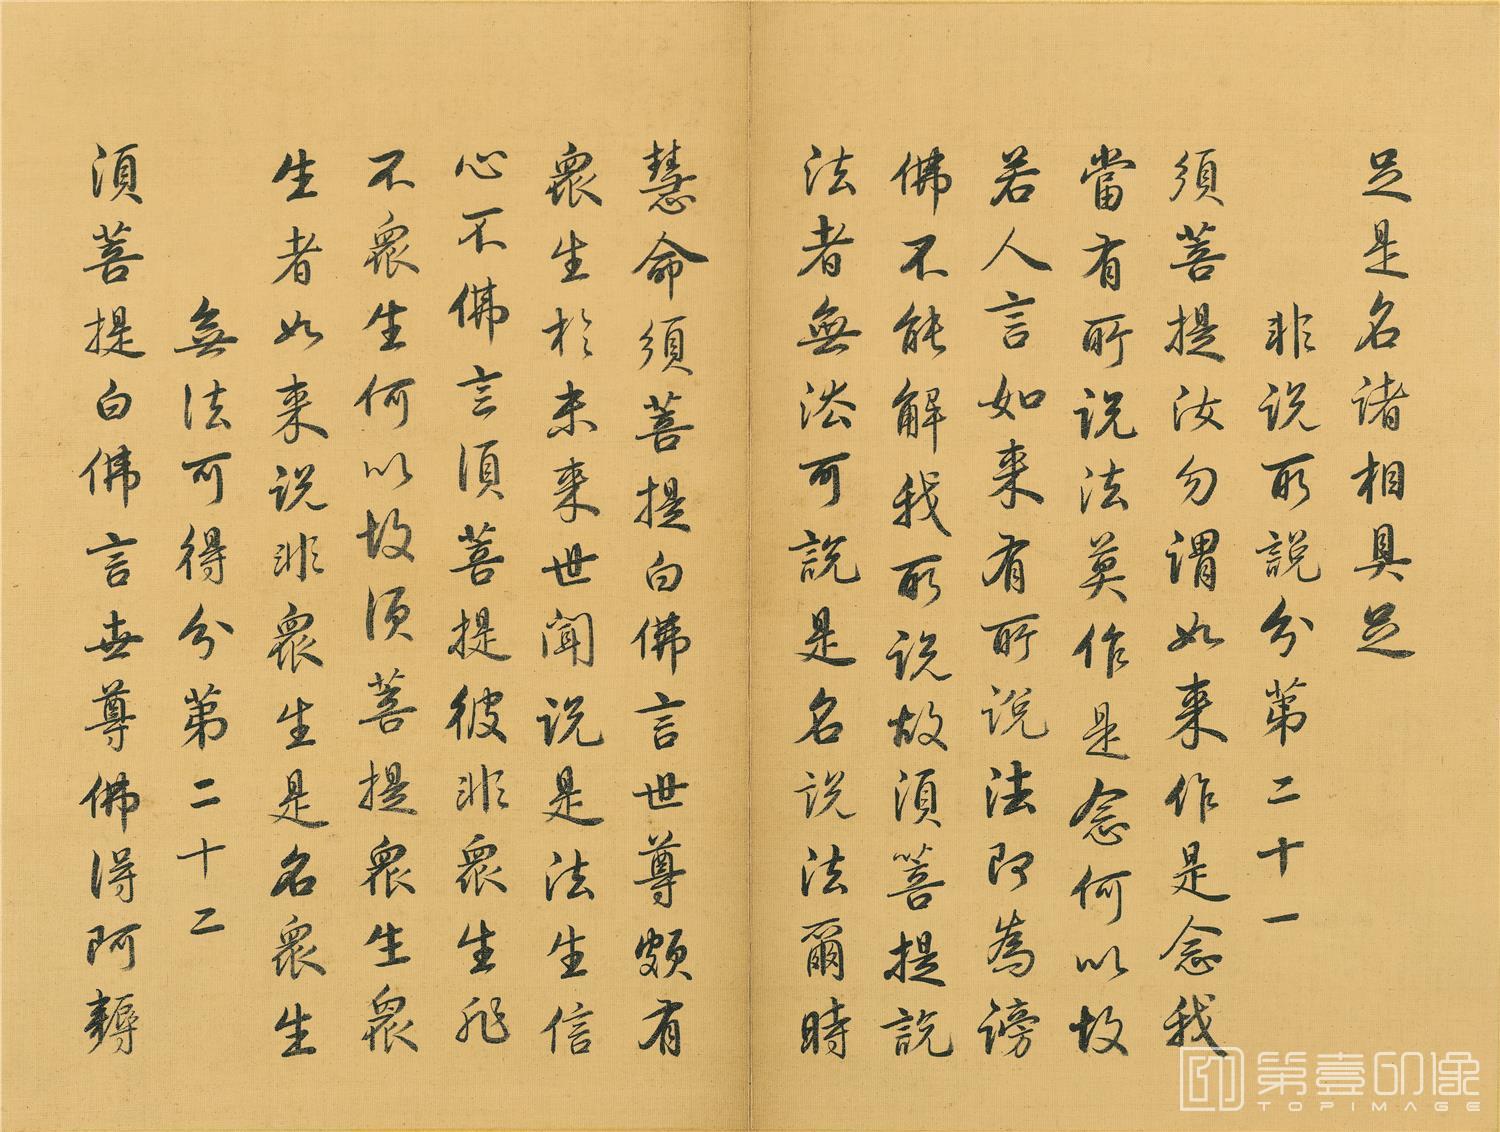 足是名諸相具足
非説所說分第二十一
須菩提汝勿謂如来作是念我
當有所説法莫作是念何以故
若人言如来有所説法即為謗
佛不能解我所説故須菩提說
法者無法可說是名説法爾時
慧命須菩提白佛言世尊頗有
衆生於未来世聞説是法生信
心不佛言須菩提彼非衆生非
不衆生何以故須菩提衆生衆
生者如来説非衆生是名衆生
無法可得分第二十二
須菩提白佛言世尊佛得阿耨
第壹印像
TOPIMAGE